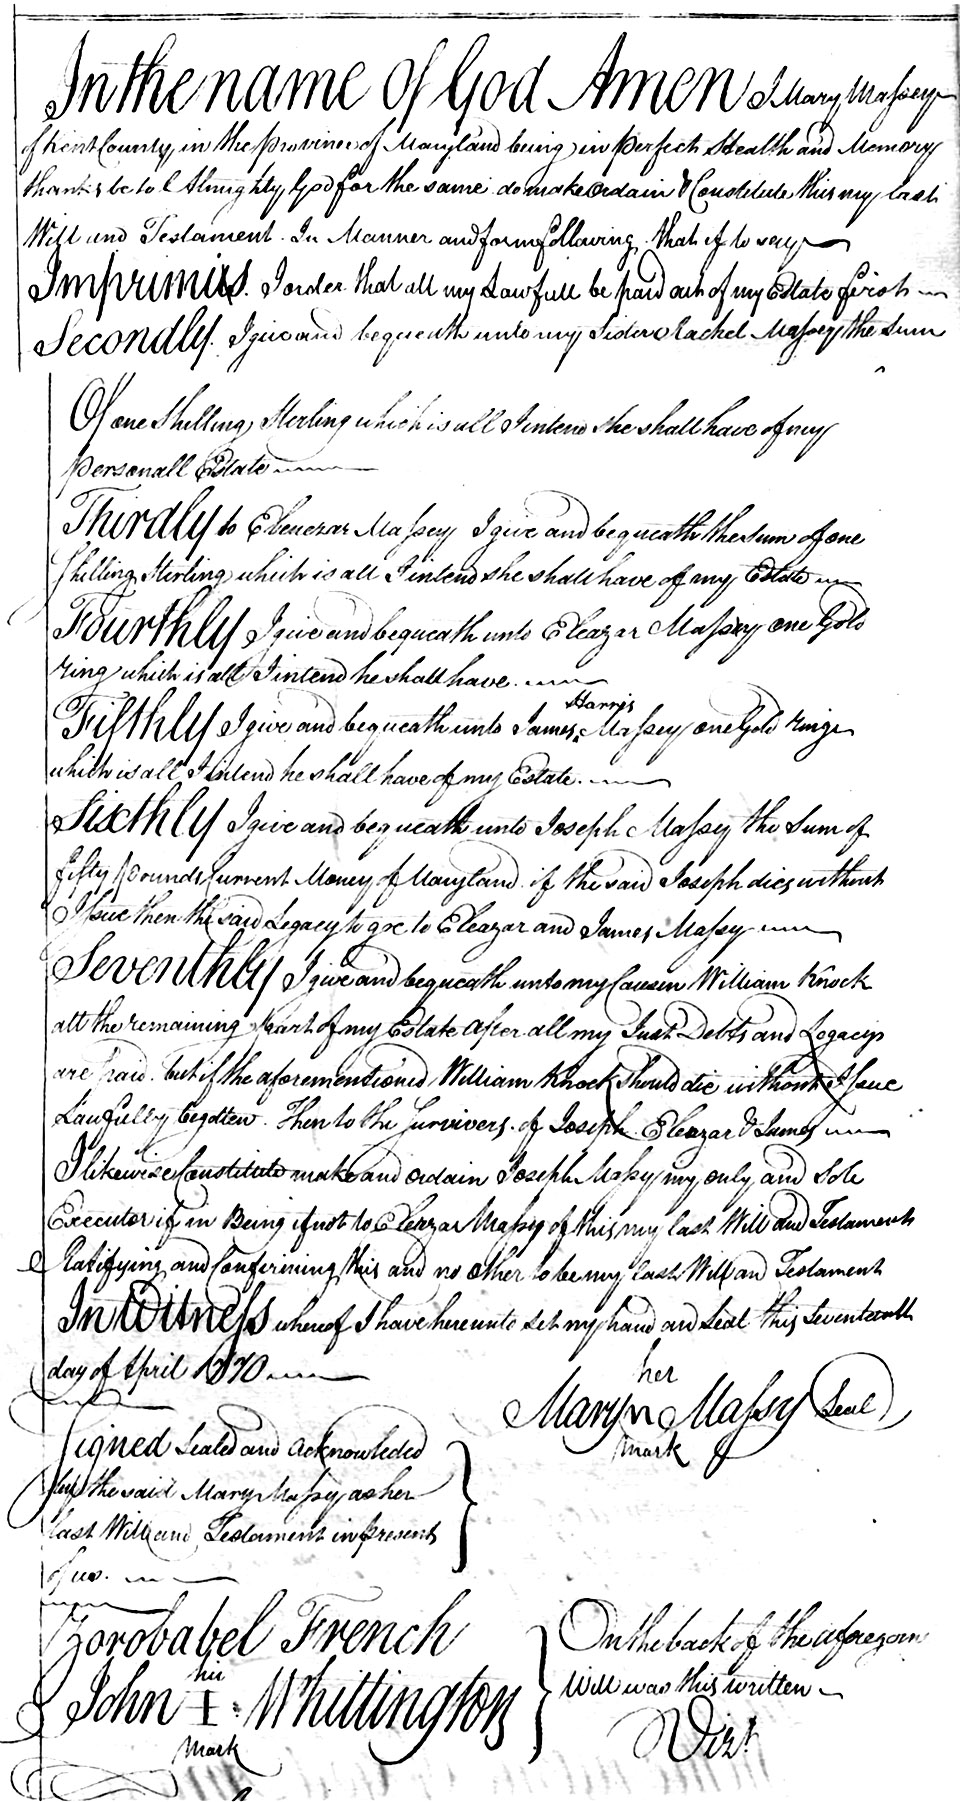 In the name of God Amen I Mary Massey
of Kent County in the province of Maryland being in perfect Health and Memory
thanks be to Almighty God for the same do make ordain & Constitute this my last
Will and Testament In Manner and form following that is to say
Imprimis. I order that all my Lawfull be paid out of my Estate first
Secondly. I give and bequeath unto my Sister Rachel Massey the Sum
Of one Shilling Sterling which is all I intend She shall have of my
personall Estate
Thirdly to Ebenezar Massey I give and bequeath the Sum of one
shilling Sterling which is all I intend she shall have of my Estate
Fourthly I give and bequeath unto Eleazar Massey one Gold
ring which is all I intend he shall have.
Harris
Fifthly I give and bequeath unto James Massey one Gold ringe
which is all I intend he shall have of my Estate.
Sixthly I give and bequeath unto Joseph Massey the Sum of
fifty pounds Current Money of Maryland if the said Joseph dies without
Issue then the said Legacy to goe to Eleazar and James Massy
Seventhly I give and bequeath unto my Cousen William Knock
all the remaining part of my Estate after all my Just Debts and Legacys
are paid. but if the aforementioned William Knock should die without Issue
Lawfully begotten. Then to the survivers of Joseph Eleazar & James
I likewise Constitute make and ordain Joseph Massy my only and Sole
Executor if in Being if not to Eleazar Massy of this my last Will and Testament
Ratifying and Confirming this and no other to be my last Will an Testament
In Witness whereof I have hereunto set my hand and Seal this Seventeenth
day of April 1770
her
Mary Massy Seal
mark
Signed Sealed and Acknowleded
by the said Mary Massy as her
last Will and Testament in present
of us.
Zorobabel French
his
John I Whittington
mark
On the back of the aforegoing
Will was this written
Vizt